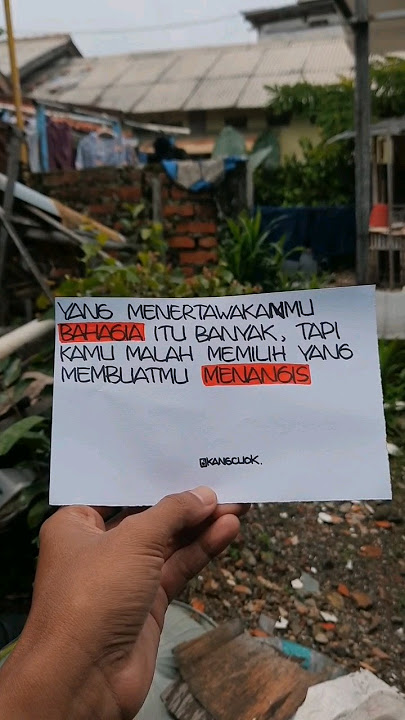 YANG MENERTAWAKANMU
BAHAGIA ITU BANYAK, TAPI
KAMU MALAH MEMILIH YANG
MEMBUATMU MENANGIS
@KANGCLIOK.